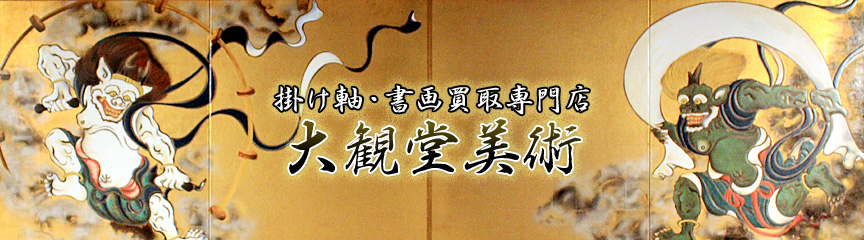 掛け軸・書画買取専門店
大観堂美術